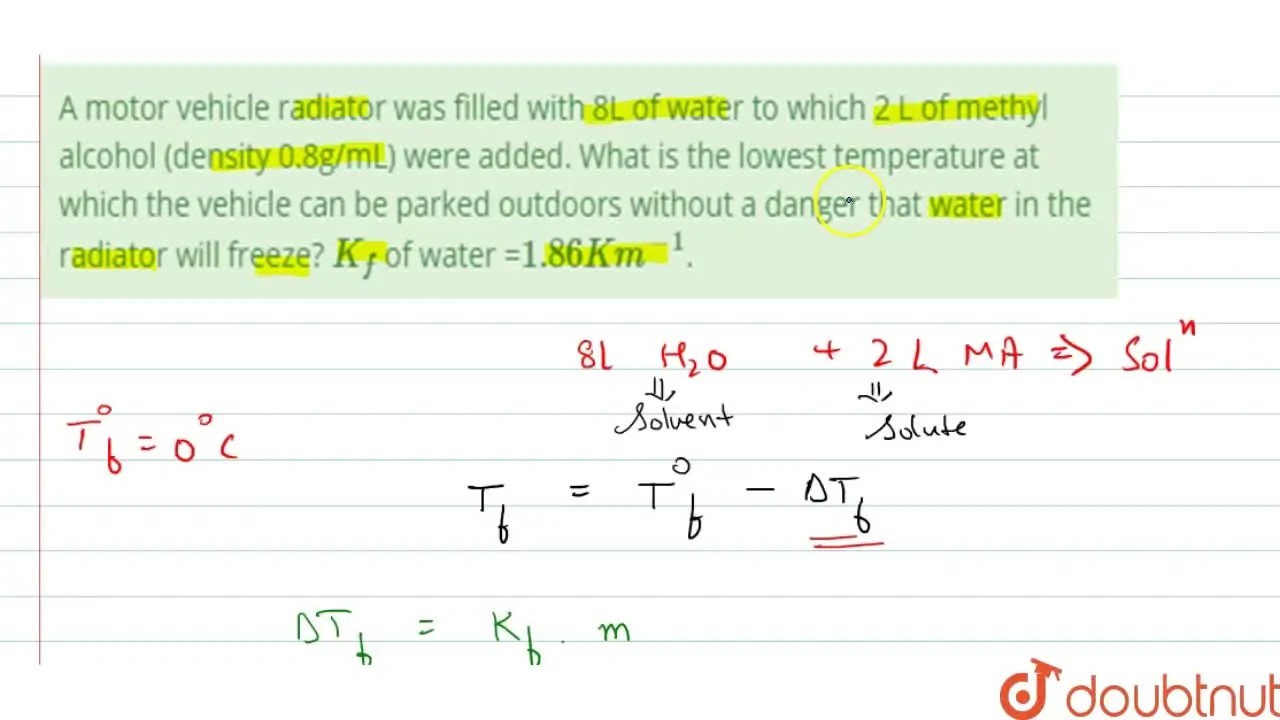 A motor vehicle radiator was filled with 8L of water to which 2 L of methyl
alcohol (density 0.8g/mL) were added. What is the lowest temperature at
which the vehicle can be parked outdoors without a danger that water in the
radiator will freeze? K_f of water =1.86Km⁻¹.
8L H₂O + 2 L MA ⇒ Solⁿ
⇓ ⇓
Solvent Solute
T°f = 0°C
Tf = T°f − ΔTf
ΔTf = Kf . m
doubtnut